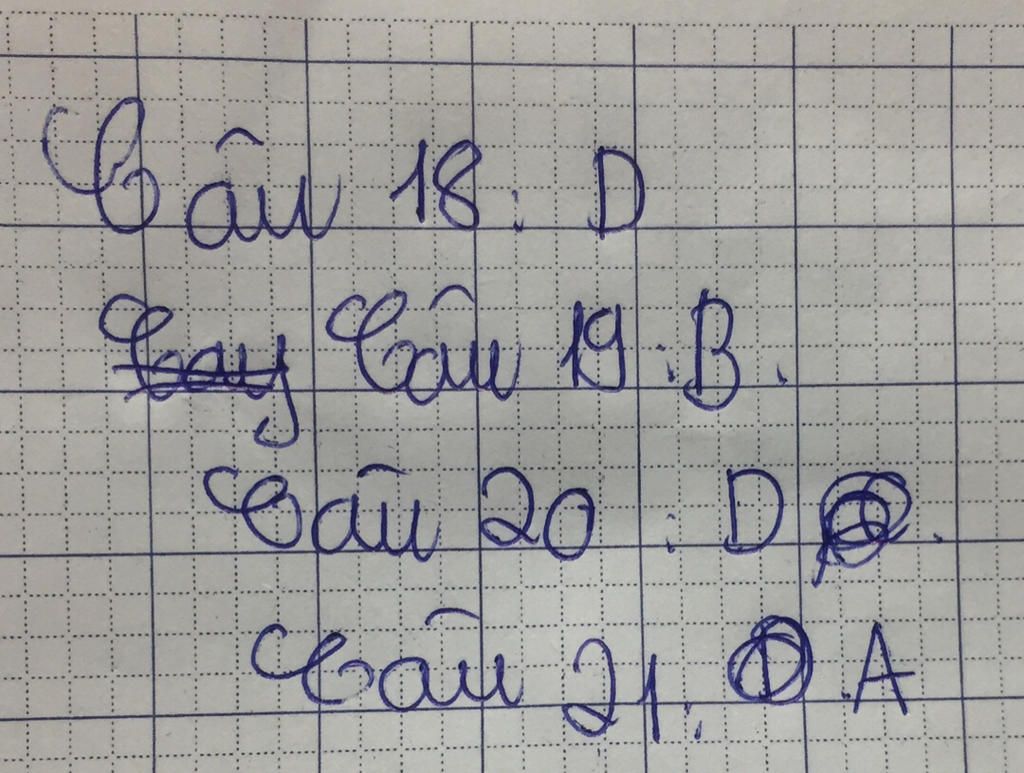 Câu 18: D
Câu 19: B.
Câu 20: D.
Câu 21: A